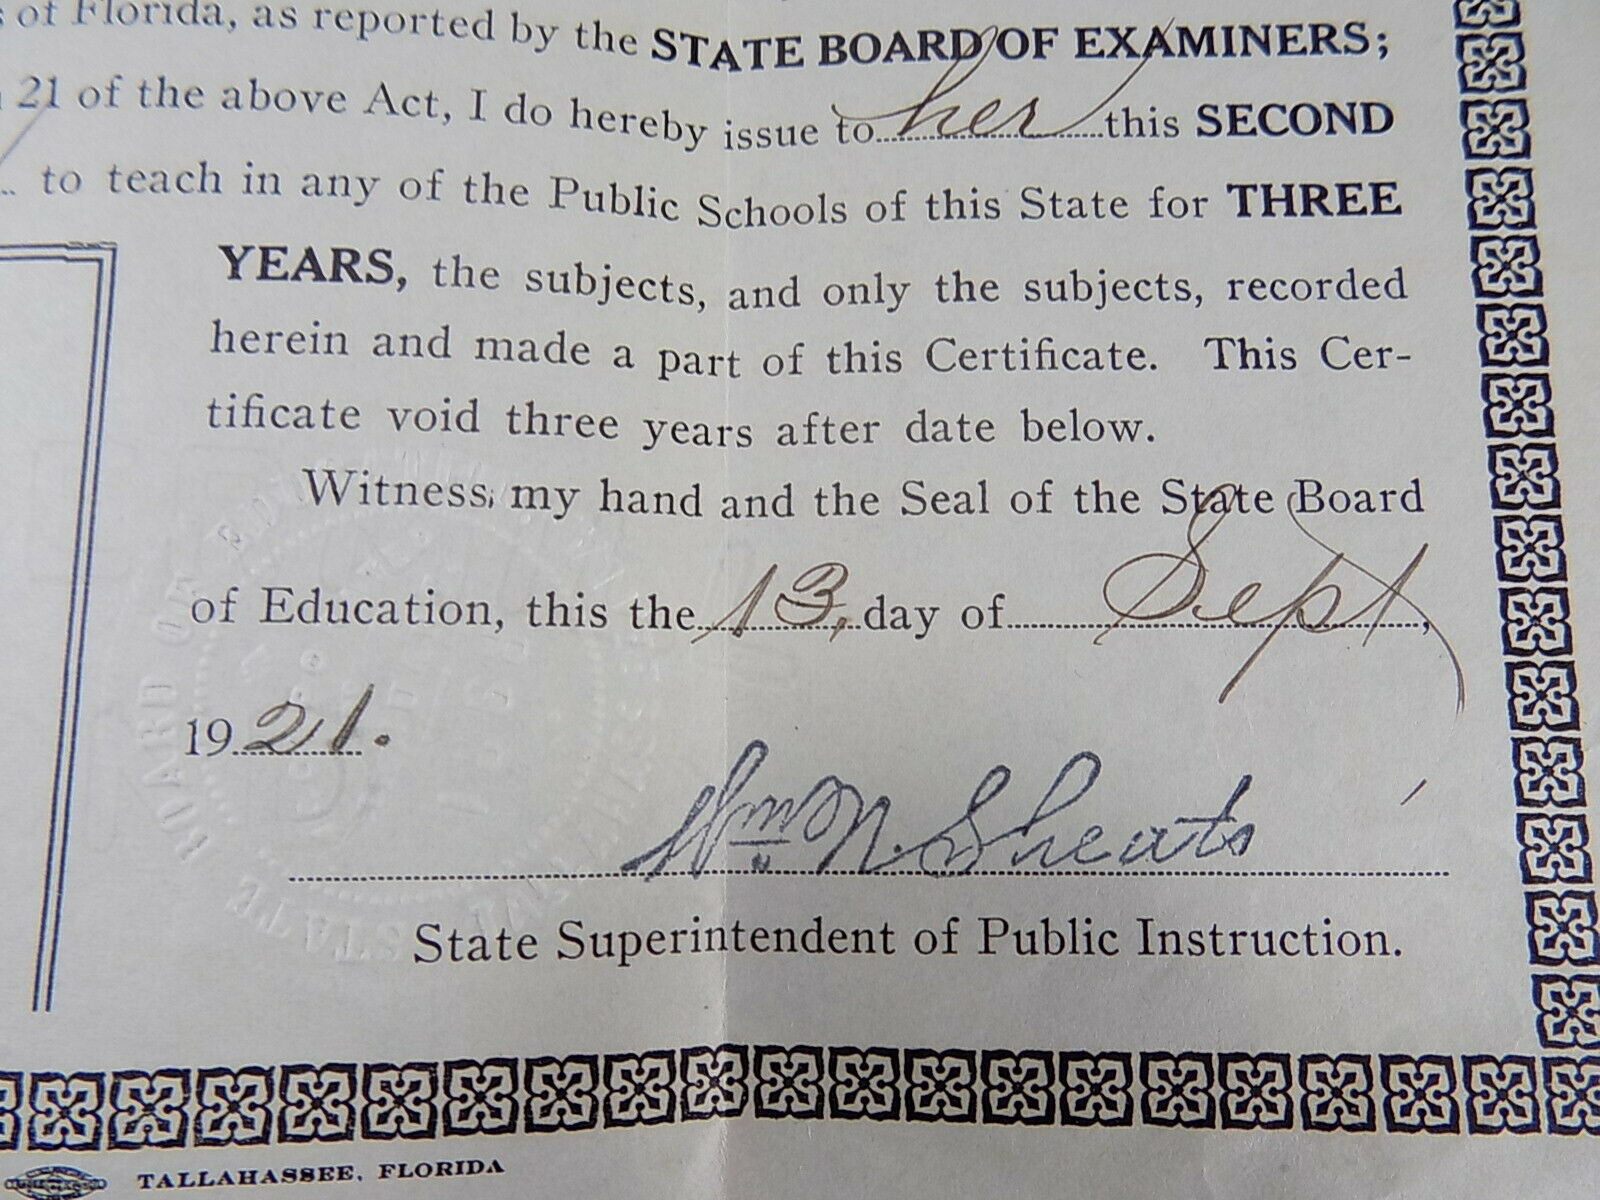 of Florida, as reported by the STATE BOARD OF EXAMINERS;
21 of the above Act, I do hereby issue to her this SECOND
to teach in any of the Public Schools of this State for THREE
YEARS, the subjects, and only the subjects, recorded
herein and made a part of this Certificate. This Cer-
tificate void three years after date below.
Witness my hand and the Seal of the State Board
of Education, this the 13, day of Sept,
1921.
Wm N. Sheats
State Superintendent of Public Instruction.
BOARD OF
STATE
TALLAHASSEE, FLORIDA